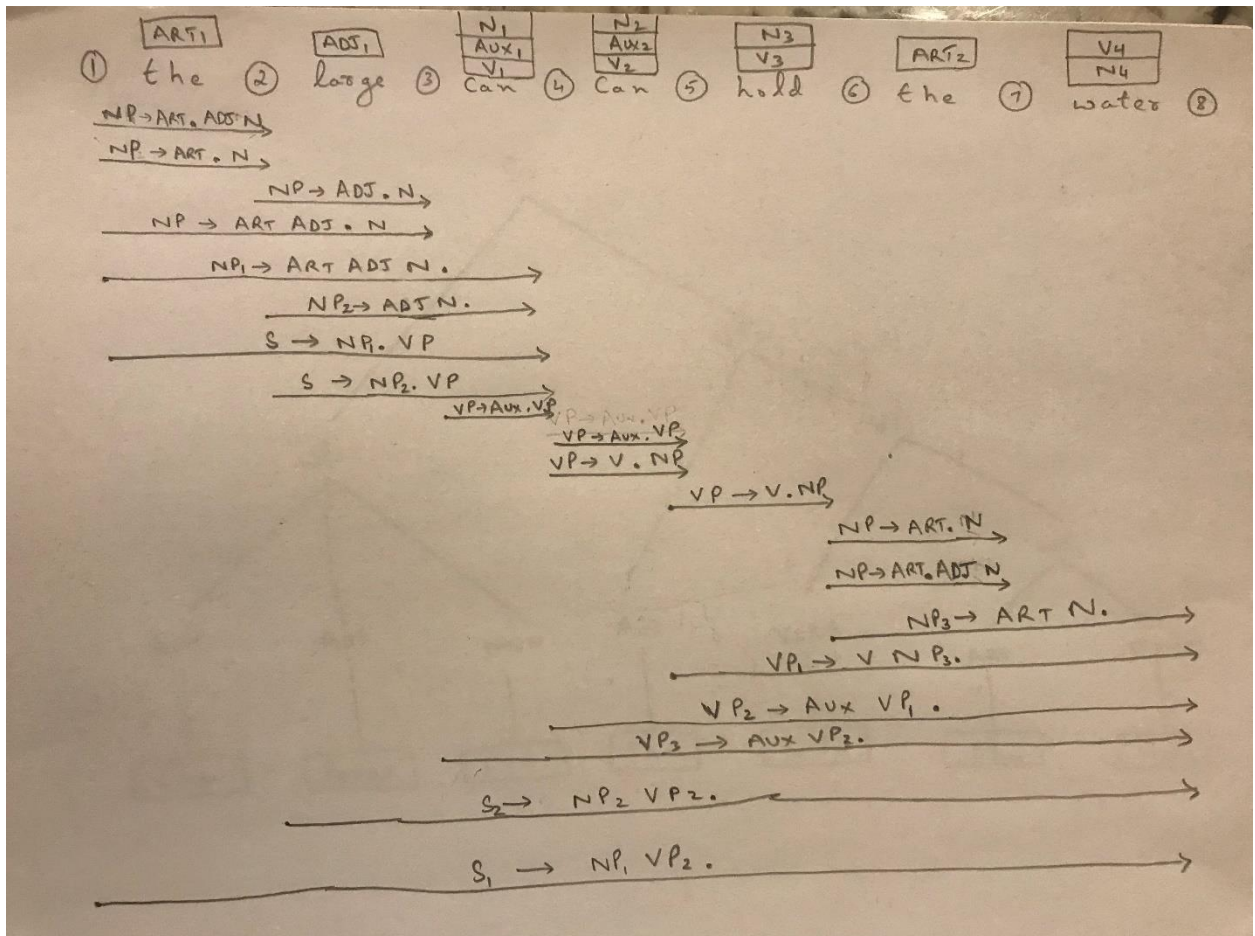 ART₁ ADJ₁ N₁ N₂ N₃ ART₂ V₄
AUX₁ AUX₂ V₃ N₄
V₁ V₂
① the ② large ③ Can ④ Can ⑤ hold ⑥ the ⑦ water ⑧
NP → ART . ADJ N
NP → ART . N
NP → ADJ . N
NP → ART ADJ . N
NP₁ → ART ADJ N .
NP₂ → ADJ N .
S → NP₁ . VP
S → NP₂ . VP
VP → Aux . VP
VP → Aux . VP
VP → Aux . VP
VP → V . NP
VP → V . NP
NP → ART . N
NP → ART . ADJ N
NP₃ → ART N .
VP₁ → V NP₃ .
VP₂ → AUX VP₁ .
VP₃ → AUX VP₂ .
S₂ → NP₂ VP₂ .
S₁ → NP₁ VP₂ .